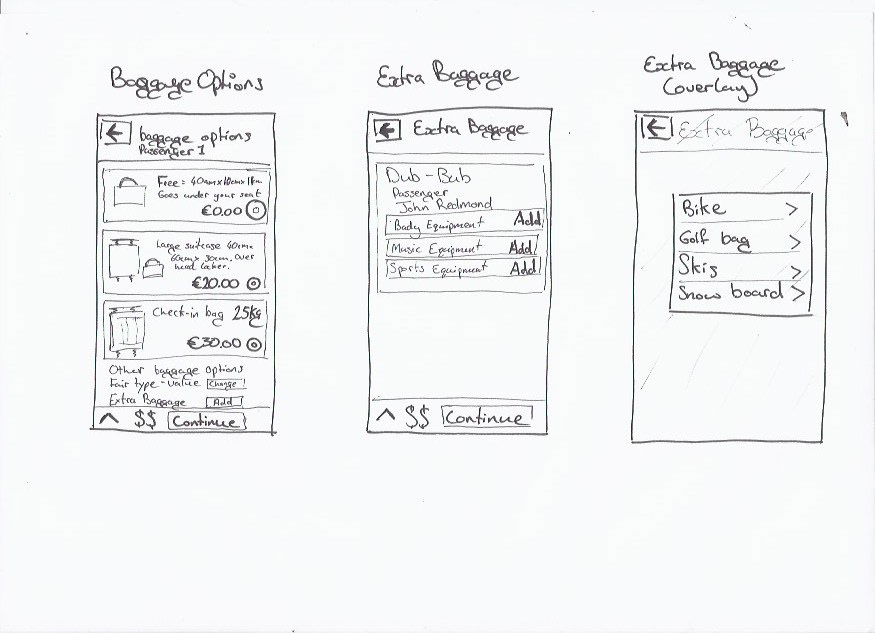 Baggage Options
baggage options
Passenger 1
Free: 40cm x 10cm x
Goes under your seat
€0.00
Large suitcase 40cm x
60cm x 30cm, over
head locker.
€20.00
Check-in bag 25kg
€30.00
Other baggage options
Fair type - value Change
Extra Baggage Add
^ $$ Continue
Extra Baggage
Extra Baggage
Dub - Bub
Passenger
John Redmond
Bady Equipment Add
Music Equipment Add
Sports Equipment Add
^ $$ Continue
Extra Baggage
(overlay)
Extra Baggage
Bike >
Golf bag >
Skis >
Snow board >